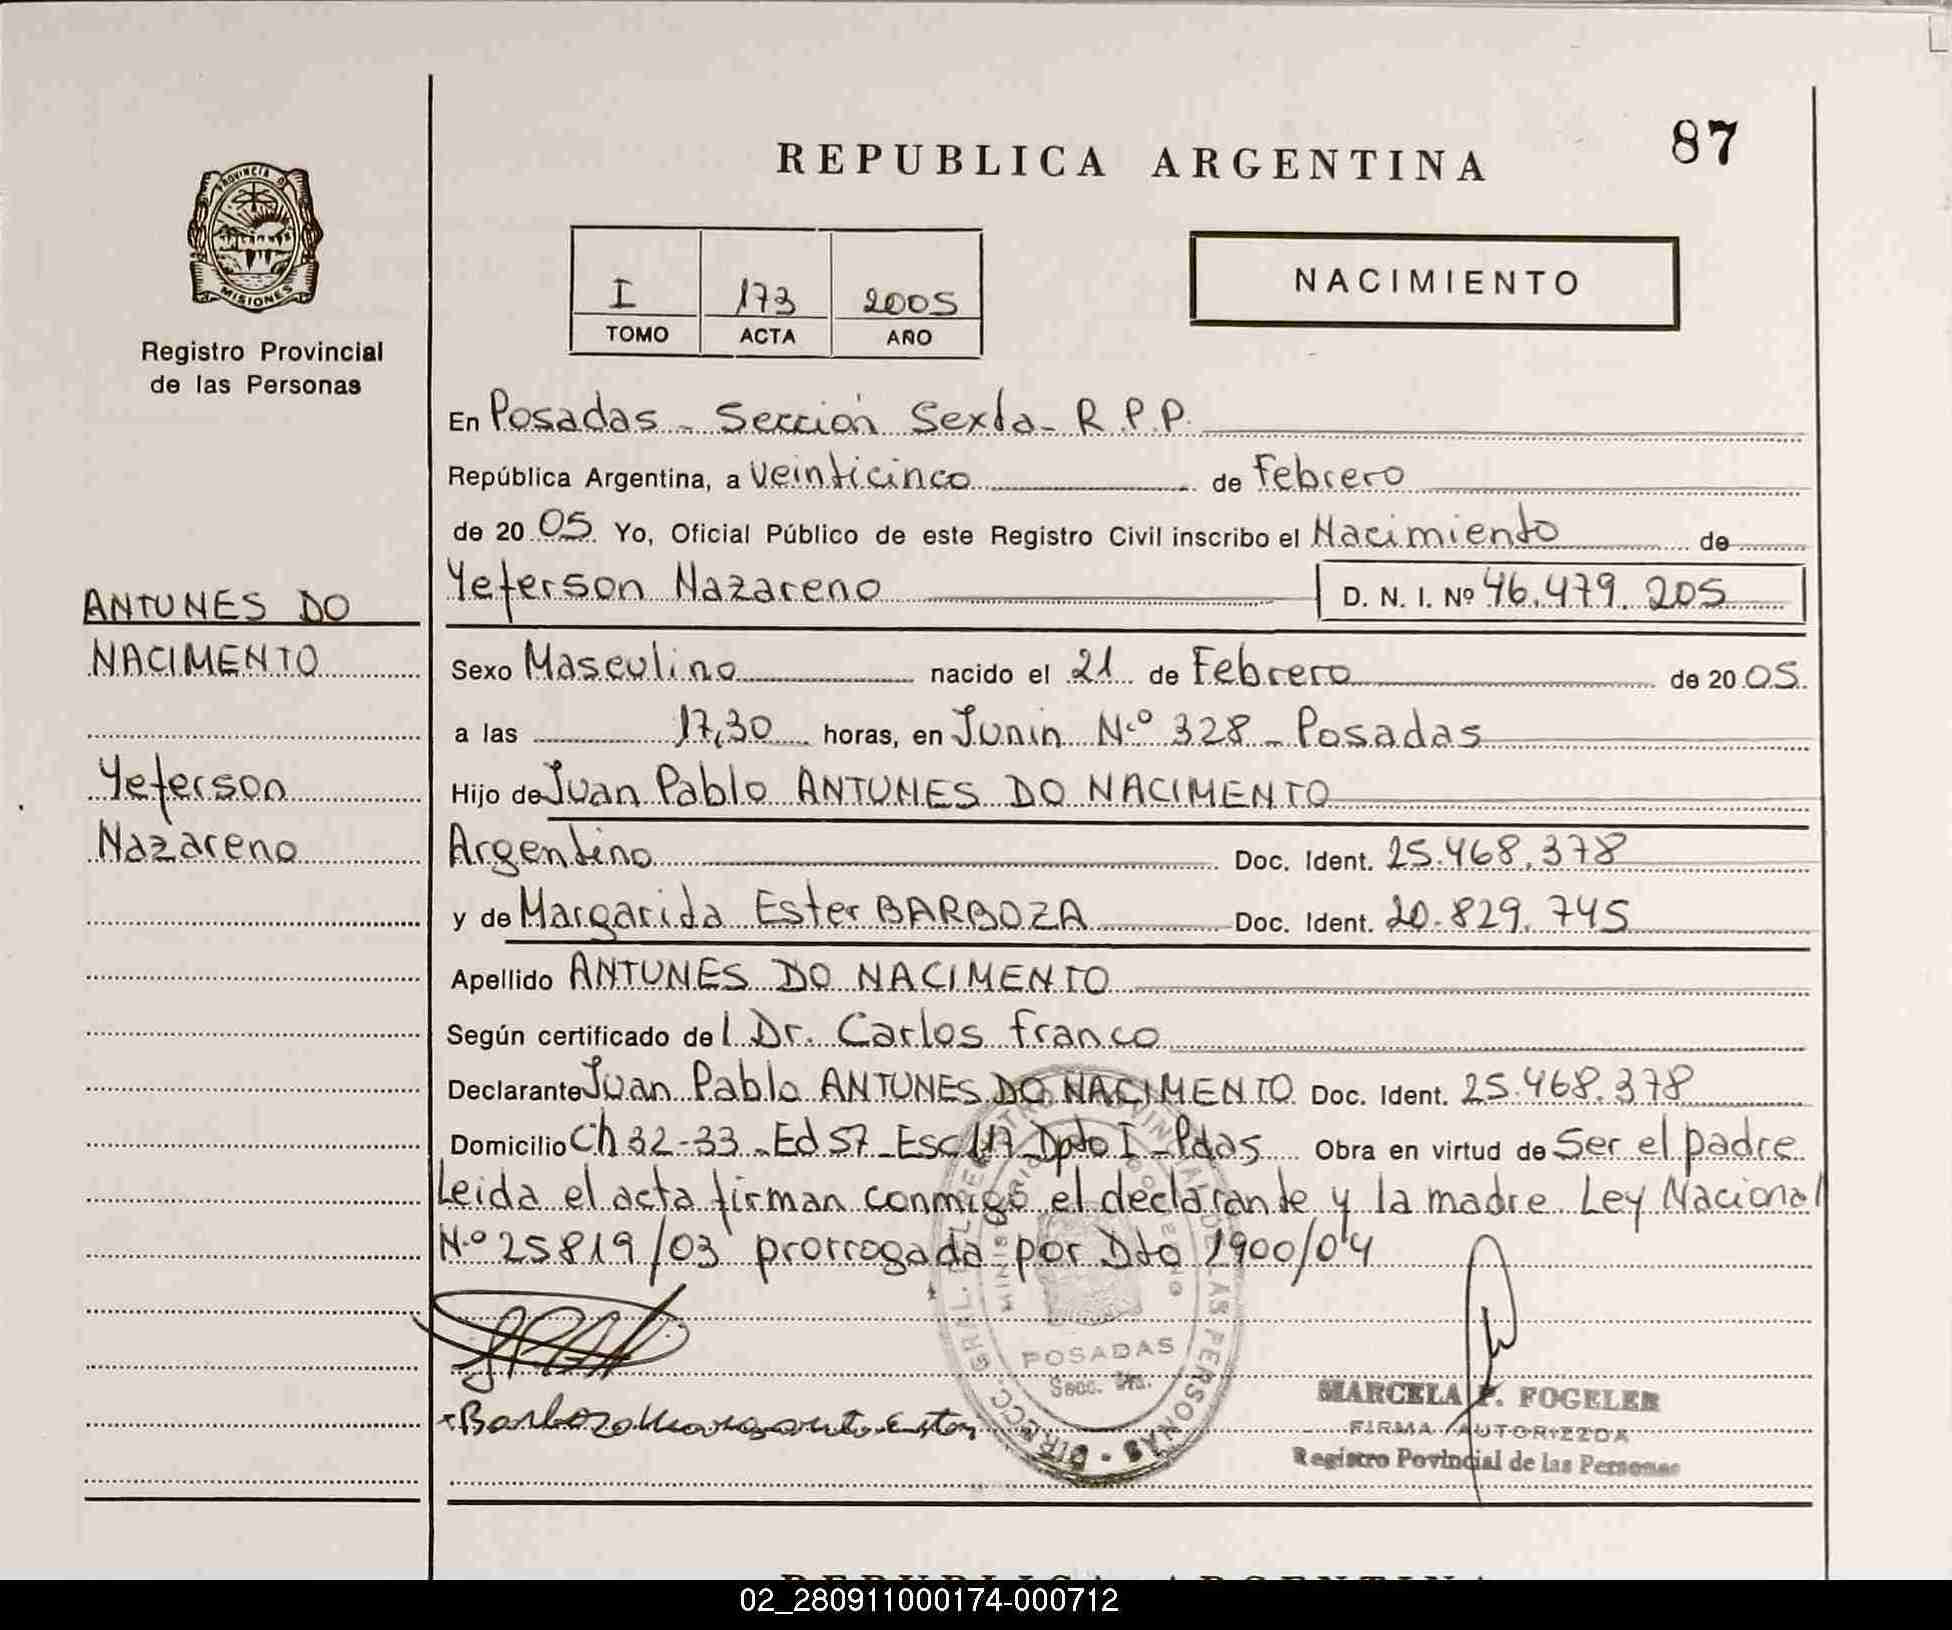 REPUBLICA ARGENTINA
87
PROVINCIA D
MISIONES
Registro Provincial
de las Personas
I 173 2005
TOMO ACTA AÑO
NACIMIENTO
En Posadas - Sección Sexta - R.P.P.
República Argentina, a Veinticinco de Febrero
de 20 05. Yo, Oficial Público de este Registro Civil inscribo el Nacimiento de
Yeferson Nazareno D. N. I. Nº 46.479.205
ANTUNES DO
NACIMENTO
Yeferson
Nazareno
Sexo Masculino nacido el 21 de Febrero de 20 05.
a las 17,30 horas, en Junin N.º 328 - Posadas
Hijo de Juan Pablo ANTUNES DO NACIMENTO
Argentino Doc. Ident. 25.468.378
y de Margarida Ester BARBOZA Doc. Ident. 20.829.745
Apellido ANTUNES DO NACIMENTO
Según certificado de l Dr. Carlos Franco
Declarante Juan Pablo ANTUNES DO NACIMENTO Doc. Ident. 25.468.378
Domicilio Ch 32-33 - Ed 57 - Esc 117 Dpto I - Pdas Obra en virtud de Ser el padre
Leida el acta firman conmigo el declarante y la madre Ley Nacional
N.º 25819/03 prorrogada por Dto 1900/04
POSADAS
Secc.
Barboza Ester
MARCELA P. FOGELER
FIRMA AUTORIZZDA
Registro Povincial de las Personas
REPUBLICA ARGENTINA
02_280911000174-000712